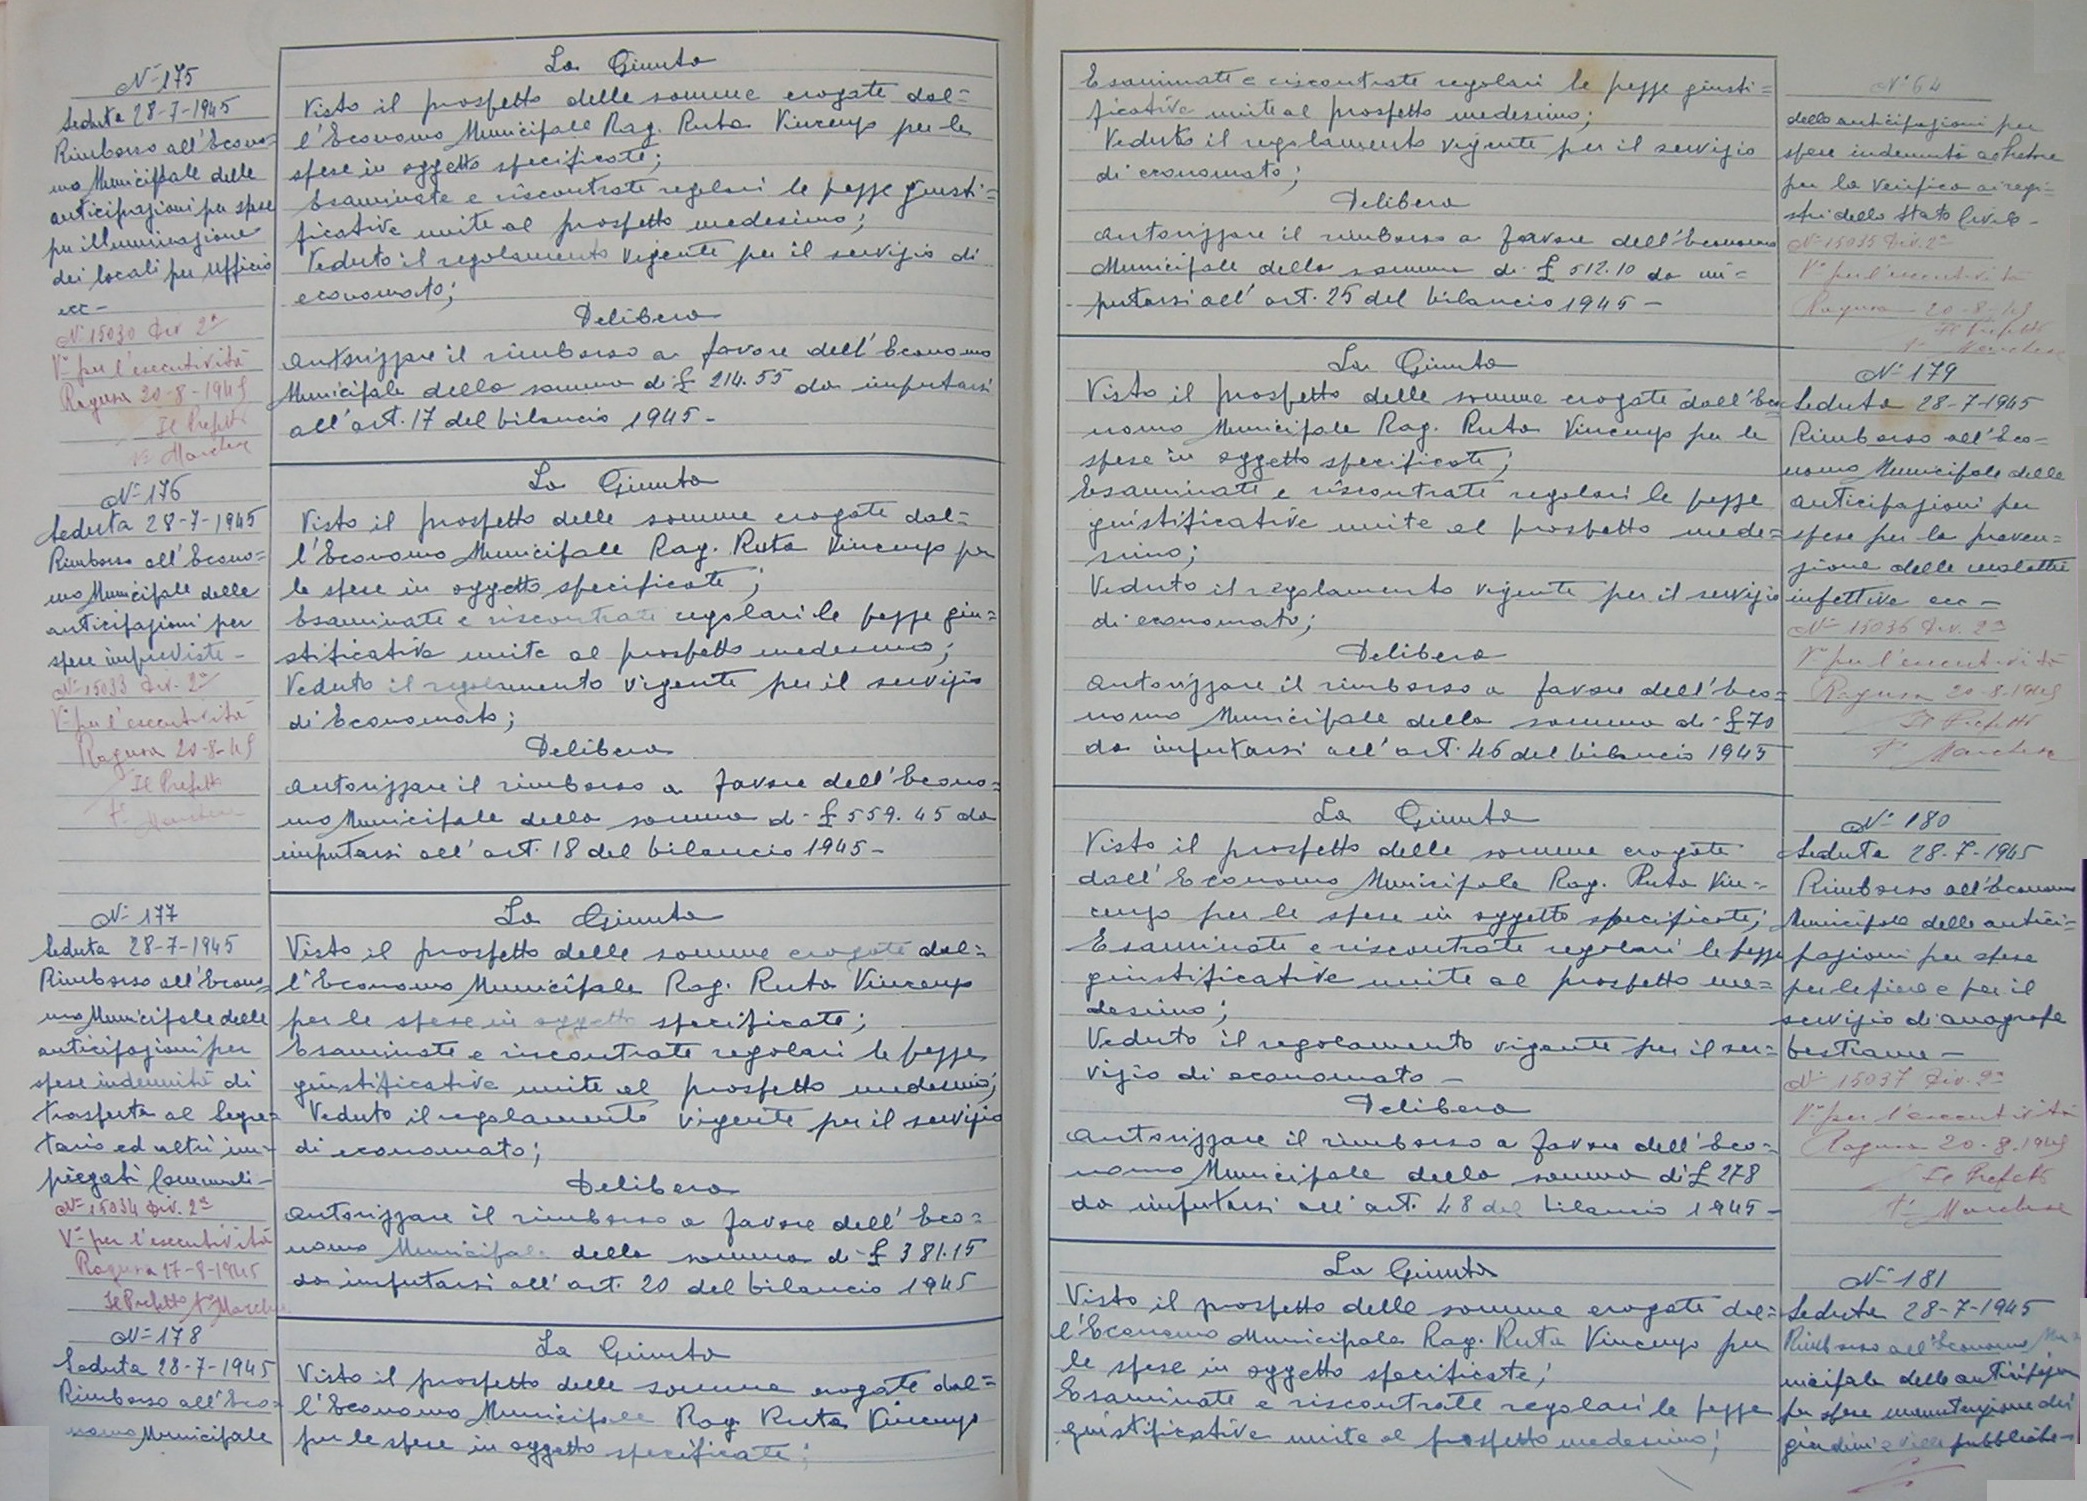 N° 175
Seduta 28-7-1945
Rimborso all'Econo-
mo Municipale delle
anticipazioni per spese
per illuminazione
dei locali per ufficio
ecc-
N° 15030 Div. 2ª
V° per l'esecutività
Ragusa 20-8-1945
Il Prefetto
F° Marchese
La Giunta
Visto il prospetto delle somme erogate dal=
l'Economo Municipale Rag. Ruta Vincenzo per le
spese in oggetto specificate;
Esaminate e riscontrate regolari le pezze giusti=
ficative unite al prospetto medesimo;
Veduto il regolamento vigente per il servizio di
economato;
Delibera
Autorizzare il rimborso a favore dell'Economo
Municipale della somma di £ 214.55 da imputarsi
all'art. 17 del bilancio 1945-
N° 176
Seduta 28-7-1945
Rimborso all'Econo=
mo Municipale delle
anticipazioni per
spese impreviste-
N° 15033 Div. 2ª
V° per l'esecutività
Ragusa 20-8-45
Il Prefetto
F° Marchese
La Giunta
Visto il prospetto delle somme erogate dal=
l'Economo Municipale Rag. Ruta Vincenzo per
le spese in oggetto specificate;
Esaminate e riscontrate regolari le pezze giu=
stificative unite al prospetto medesimo;
Veduto il regolamento vigente per il servizio
di Economato;
Delibera
Autorizzare il rimborso a favore dell'Econo=
mo Municipale della somma di £ 559.45 da
imputarsi all'art. 18 del bilancio 1945-
N° 177
Seduta 28-7-1945
Rimborso all'Econo-
mo Municipale delle
anticipazioni per
spese indennità di
trasferta al Segre-
tario ed altri im-
piegati Comunali-
N° 15034 Div. 2ª
V° per l'esecutività
Ragusa 17-8-1945
Il Prefetto F° Marchese
La Giunta
Visto il prospetto delle somme erogate dal=
l'Economo Municipale Rag. Ruta Vincenzo
per le spese in oggetto specificate;
Esaminate e riscontrate regolari le pezze
giustificative unite al prospetto medesimo;
Veduto il regolamento vigente per il servizio
di economato;
Delibera
Autorizzare il rimborso a favore dell'Eco=
nomo Municipale della somma di £ 381.15
da imputarsi all'art. 20 del bilancio 1945
N° 178
Seduta 28-7-1945
Rimborso all'Eco-
nomo Municipale
La Giunta
Visto il prospetto delle somme erogate dal=
l'Economo Municipale Rag. Ruta Vincenzo
per le spese in oggetto specificate;
Esaminate e riscontrate regolari le pezze giusti=
ficative unite al prospetto medesimo;
Veduto il regolamento vigente per il servizio
di economato;
Delibera
Autorizzare il rimborso a favore dell'Economo
Municipale della somma di £ 512.10 da im=
putarsi all'art. 25 del bilancio 1945-
N° 64
delle anticipazioni per
spese indennità al Pretore
per la verifica ai regi=
stri dello Stato Civile-
N° 15035 Div. 2ª
V° per l'esecutività
Ragusa 20-8-45
Il Prefetto
F° Marchese
La Giunta
Visto il prospetto delle somme erogate dall'Eco
nomo Municipale Rag. Ruta Vincenzo per le
spese in oggetto specificate;
Esaminate e riscontrate regolari le pezze
giustificative unite al prospetto mede=
simo;
Veduto il regolamento vigente per il servizio
di economato;
Delibera
Autorizzare il rimborso a favore dell'Eco=
nomo Municipale della somma di £ 70
da imputarsi all'art. 46 del bilancio 1945
N° 179
Seduta 28-7-1945
Rimborso all'Eco=
nomo Municipale delle
anticipazioni per
spese per la preven=
zione delle malattie
infettive ecc-
N° 15036 Div. 2ª
V° per l'esecutività
Ragusa 20-8-1945
Il Prefetto
F° Marchese
La Giunta
Visto il prospetto delle somme erogate
dall'Economo Municipale Rag. Ruta Vin=
cenzo per le spese in oggetto specificate;
Esaminate e riscontrate regolari le pezze
giustificative unite al prospetto me=
desimo;
Veduto il regolamento vigente per il ser=
vizio di economato-
Delibera
Autorizzare il rimborso a favore dell'Eco=
nomo Municipale della somma di £ 278
da imputarsi all'art. 48 del bilancio 1945-
N° 180
Seduta 28-7-1945
Rimborso all'Economo
Municipale delle antici=
pazioni per spese
per le fiere e per il
servizio di anagrafe
bestiame-
N° 15037 Div. 2ª
V° per l'esecutività
Ragusa 20-8-1945
Il Prefetto
F° Marchese
La Giunta
Visto il prospetto delle somme erogate dal=
l'Economo Municipale Rag. Ruta Vincenzo per
le spese in oggetto specificate;
Esaminate e riscontrate regolari le pezze
giustificative unite al prospetto medesimo;
N° 181
Seduta 28-7-1945
Rimborso all'Economo Mu
nicipale delle anticipazioni
per spese manutenzione dei
giardini e ville pubbliche-